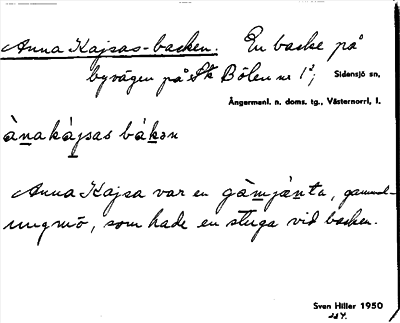 Anna Kajsas-backen. En backe på
byvägen på Stk Bölen nr 1², Sidensjö sn,
Ångermanl. n. doms. tg., Västernorrl. l.
ànakájsas bákən
Anna Kajsa var en gàmjànta, gammal-
ungmö, som hade en stuga vid backen.
Sven Hiller 1950